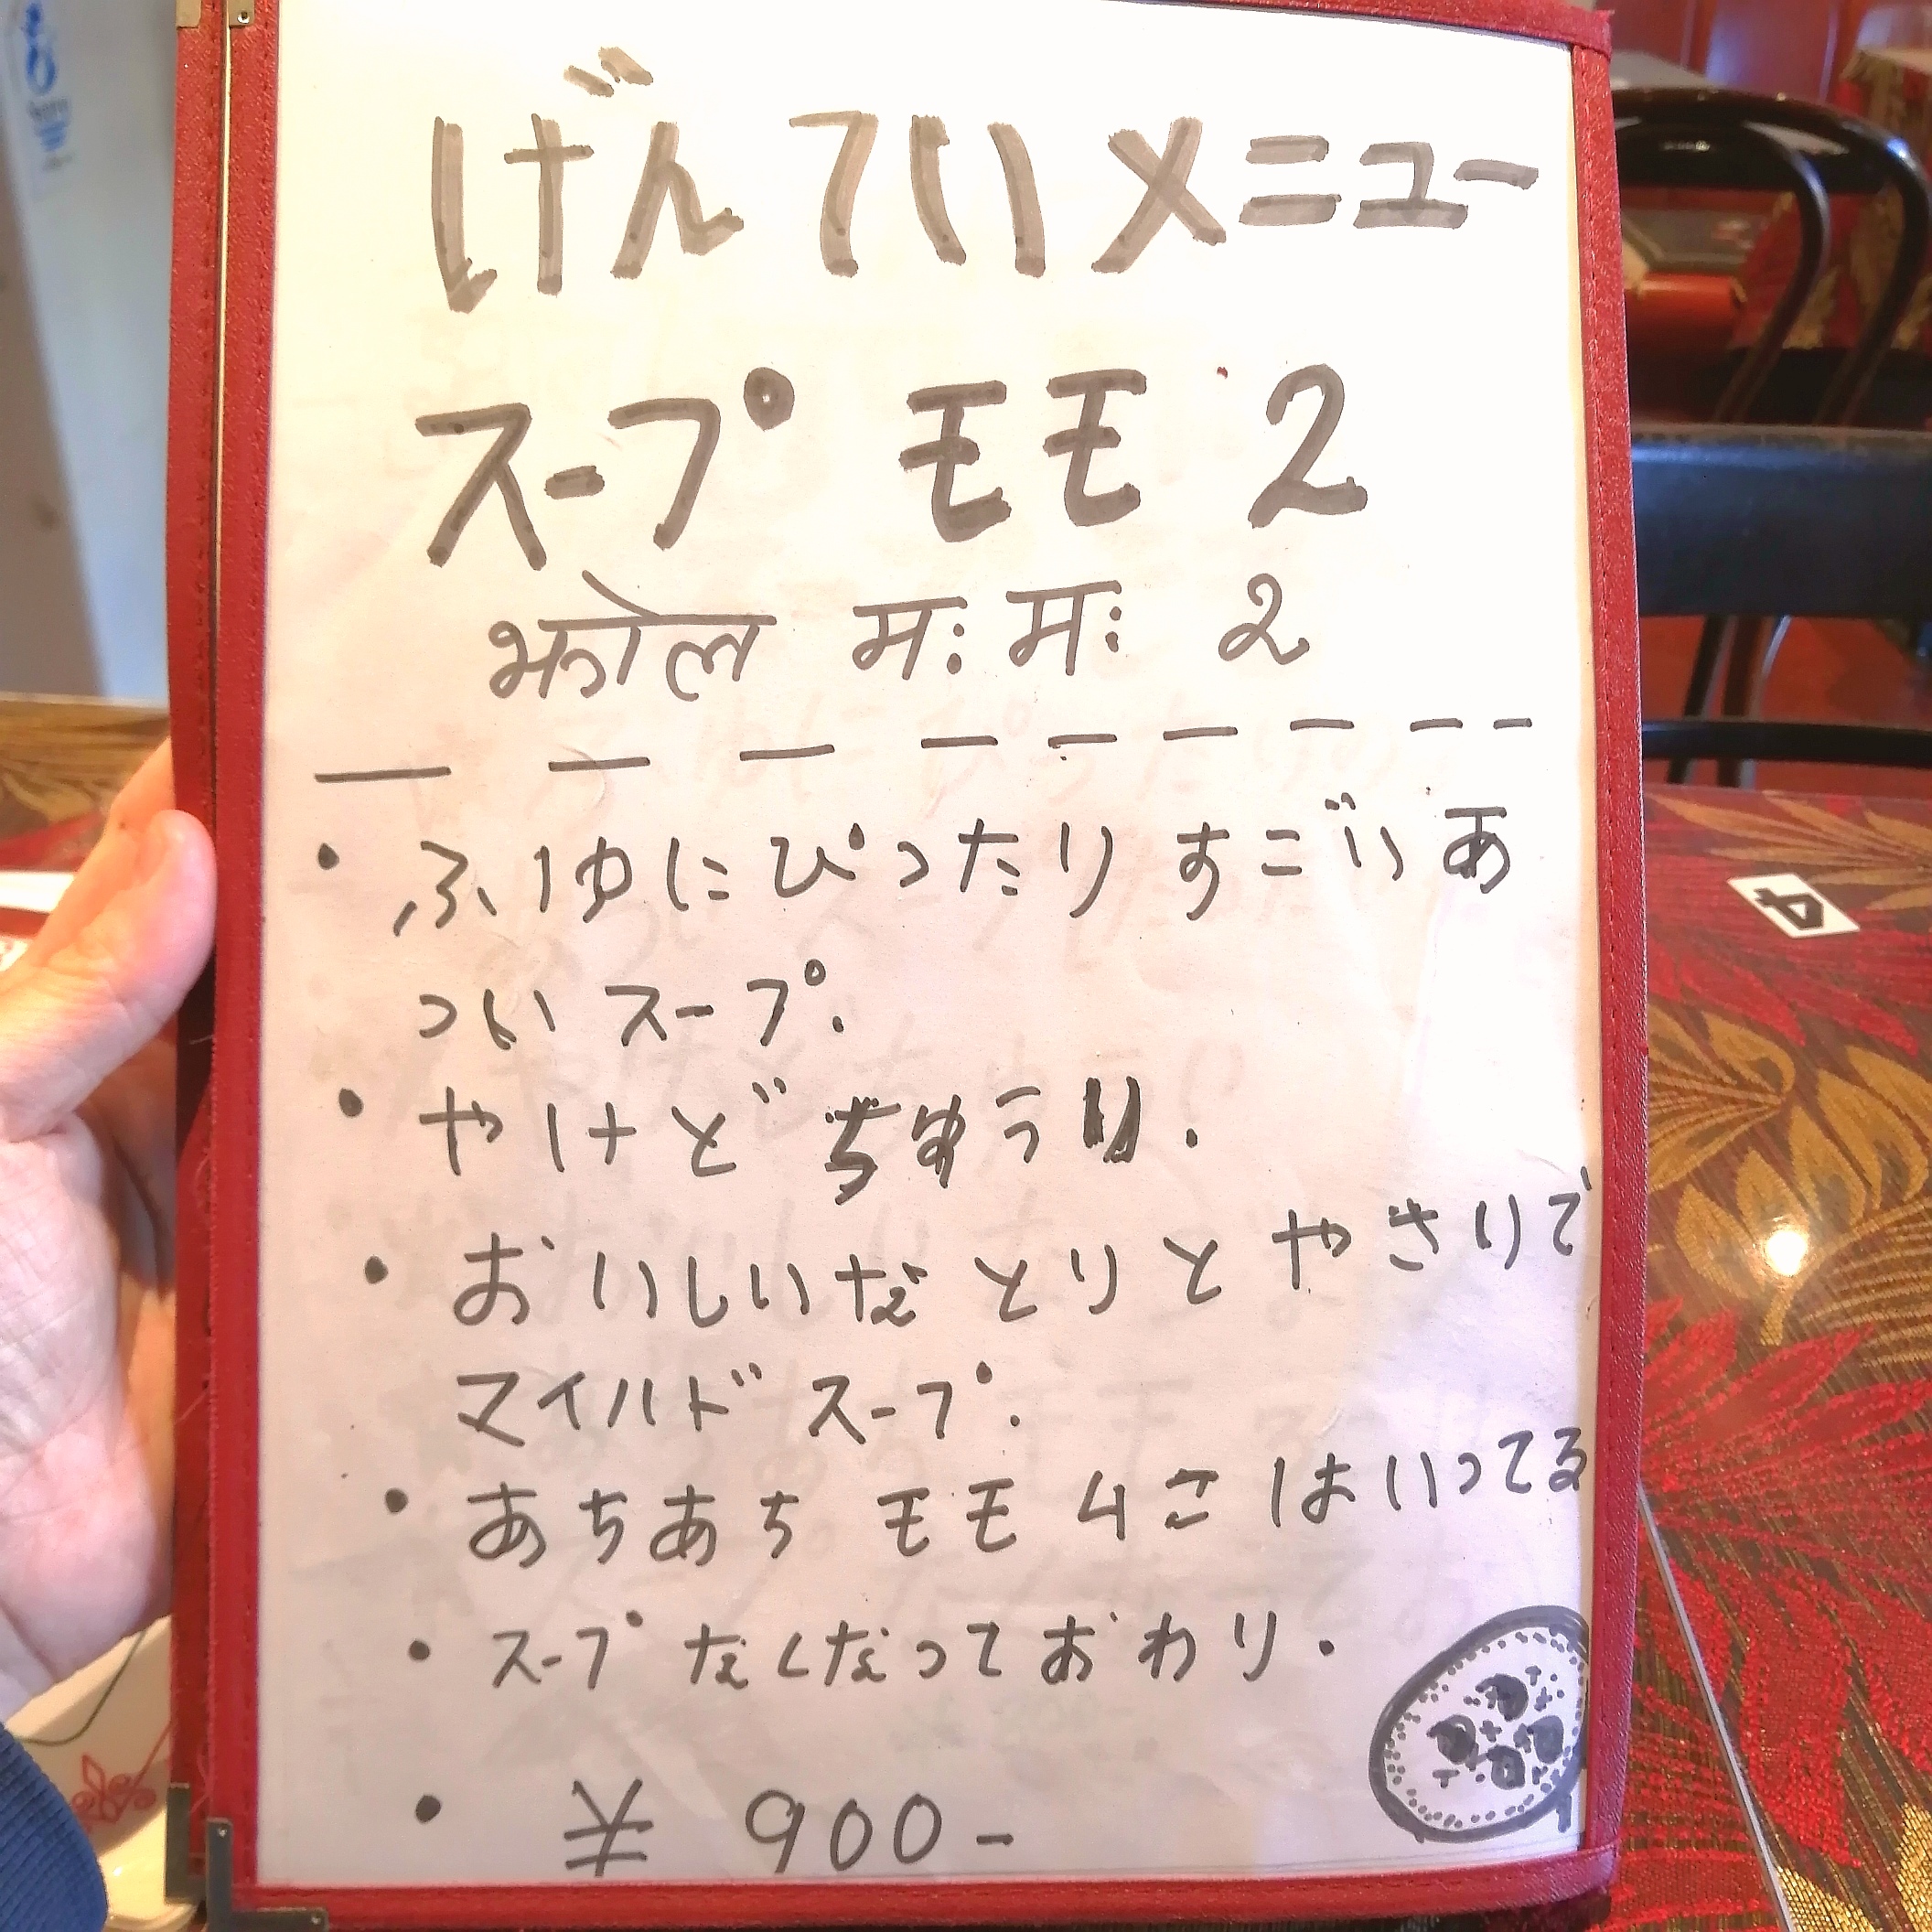 げんていメニュー
スープ モモ 2
झोल मः मः २
・ふゆにぴったり すごいあ
つい スープ.
・やけど ちゅうい.
・おいしいな とりと やさいで
マイルド スープ.
・あちあち モモ 4こ はいってる
・スープ なくなって おわり.
・¥ 900-
4